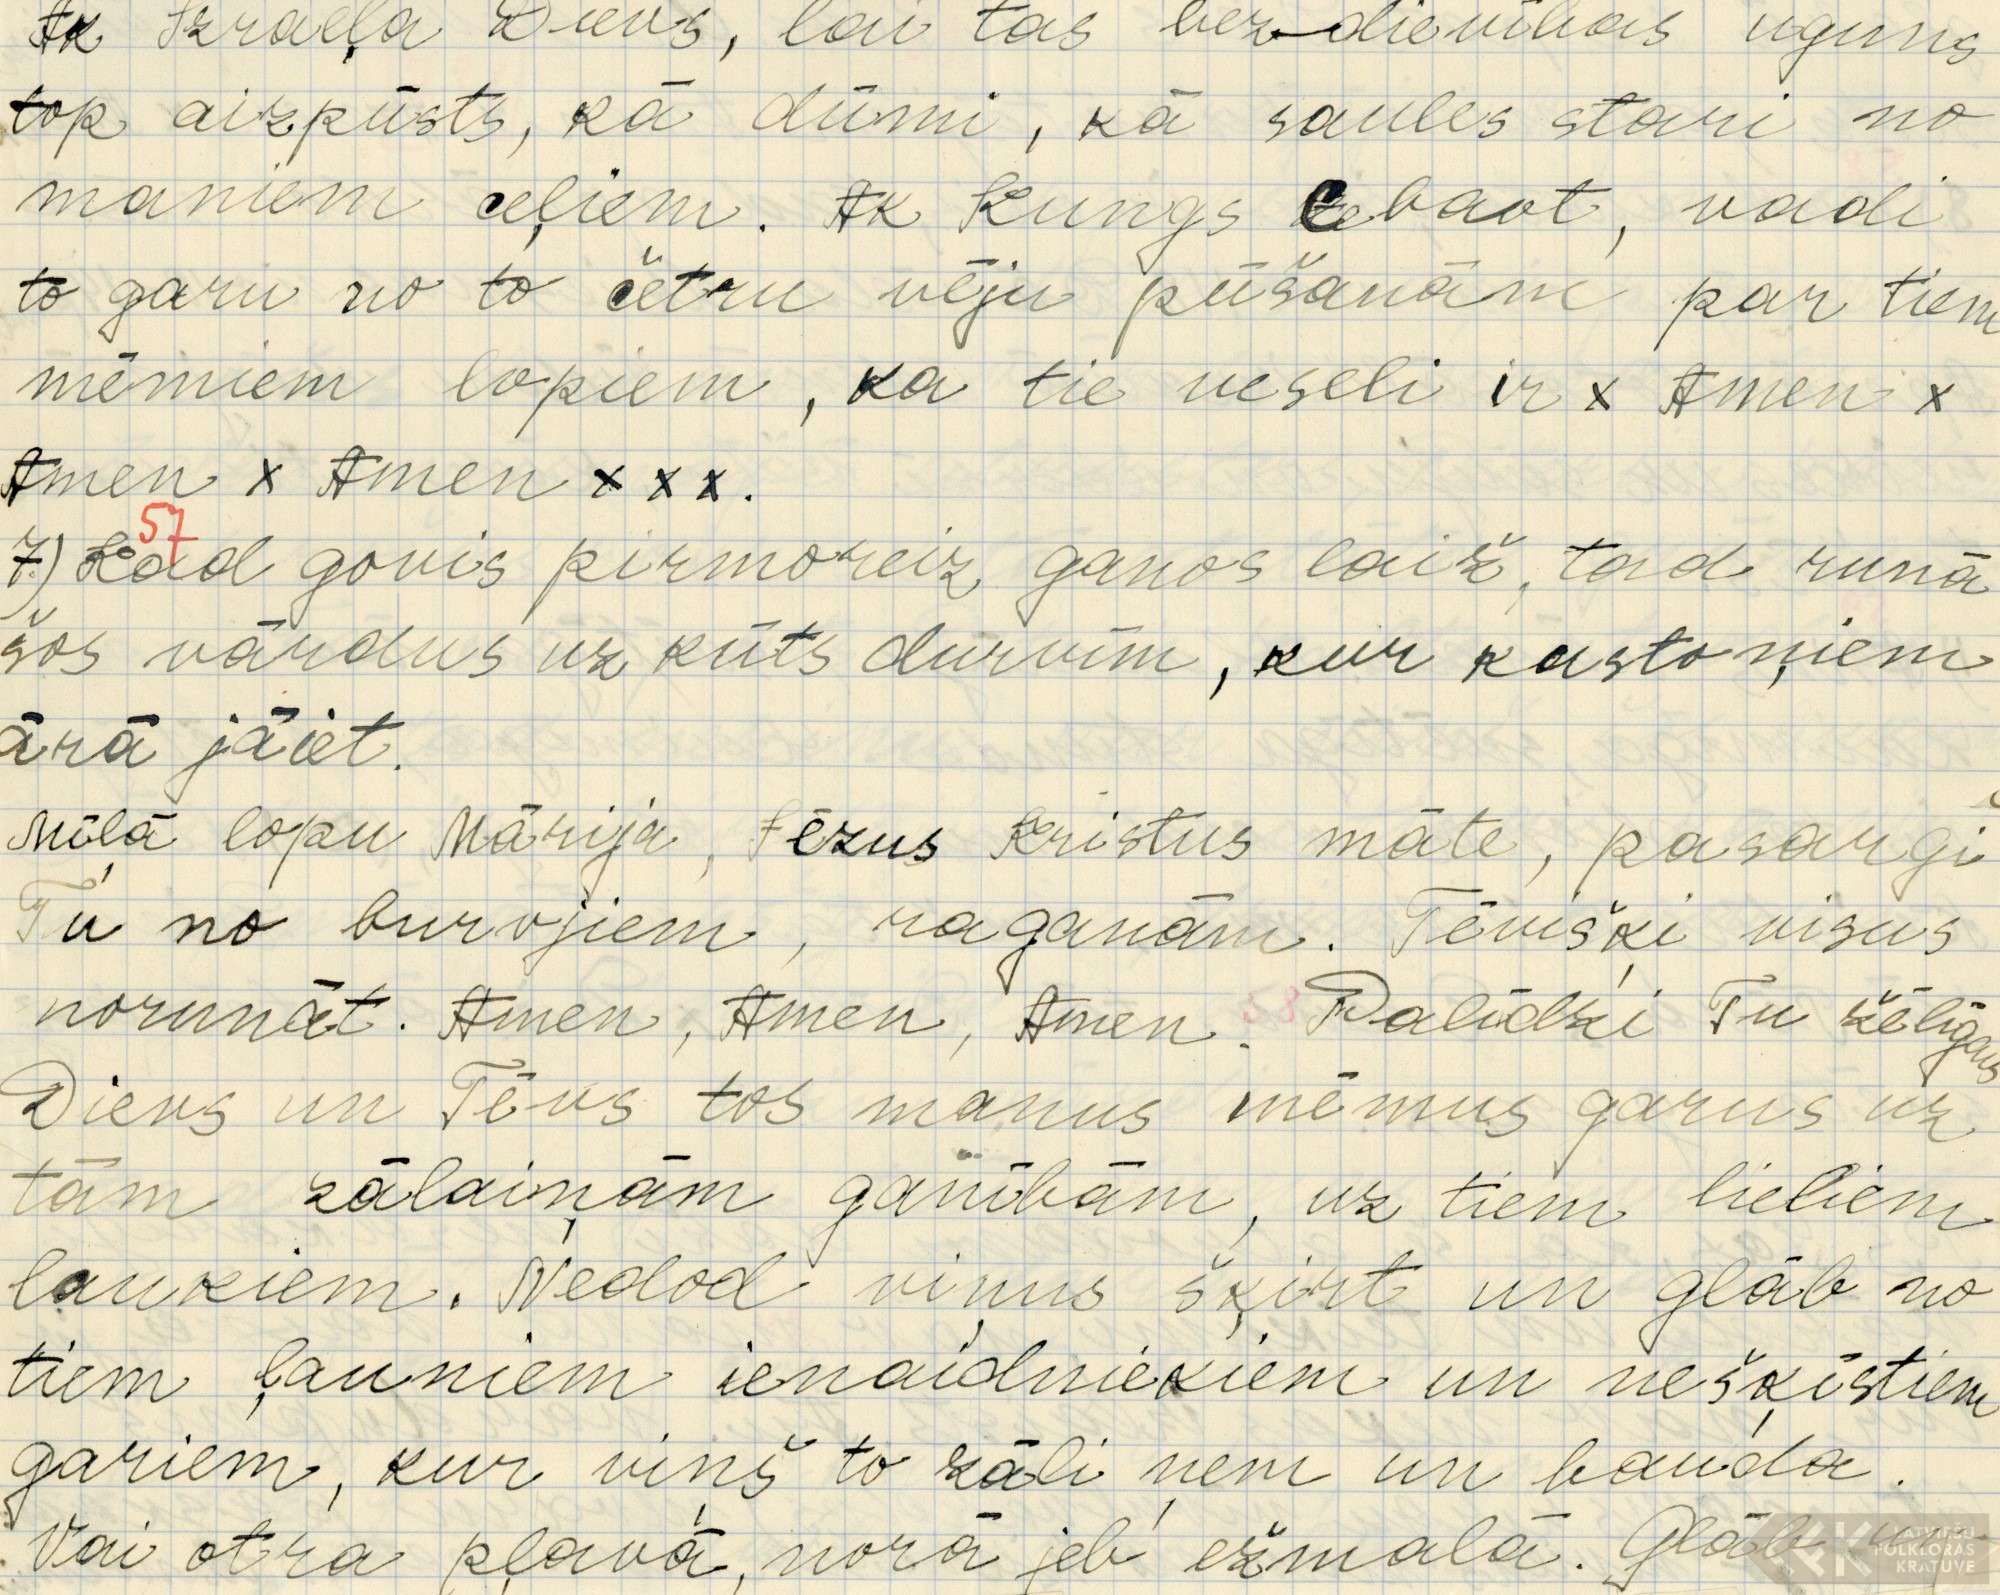 Ak Izraeļa Dievs, lai tas bez-dievības uguns
top aizpūsts, kā dūmi, kā saules stari no
maniem ceļiem. Ak Kungs Cebaot, vadi
to garu no to četru vēju pūšanām par tiem
mēmiem lopiem, ka tie veseli ir x Amen x
Amen x Amen x x x.
57
7.) Kad govis pirmoreiz ganos laiž, tad runā
šos vārdus uz kūts durvīm, kur kustoņiem
ārā jāiet.
Mīļā lopu Mārija, Jēzus Kristus māte, pasargi
Tu no burvjiem, raganām. Tēvišķi visus
norunāt. Amen, Amen, Amen. Palīdzi Tu žēlīgais
Dievs un Tēvs tos manus mēmus garus uz
tām zālaiņām ganībām, uz tiem lieliem
laukiem. Nedod viņus šķirt un glāb no
tiem ļauniem ienaidniekiem un nešķīstiem
gariem, kur viņš to zāli ņem un bauda.
Vai otra pļavā, norā jeb ežmalā. Glāb
LATVIEŠU
FOLKLORAS
KRĀTUVE